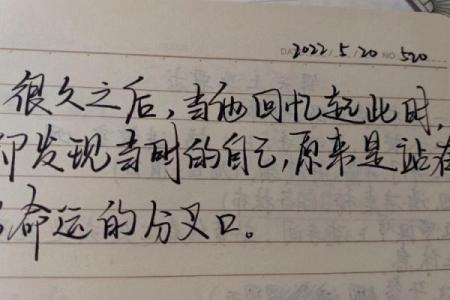 DATE 2022/5/20 NO 520
很久之后，当他回忆起此时，
却发现当时的自己，原来是站在
命运的分叉口。